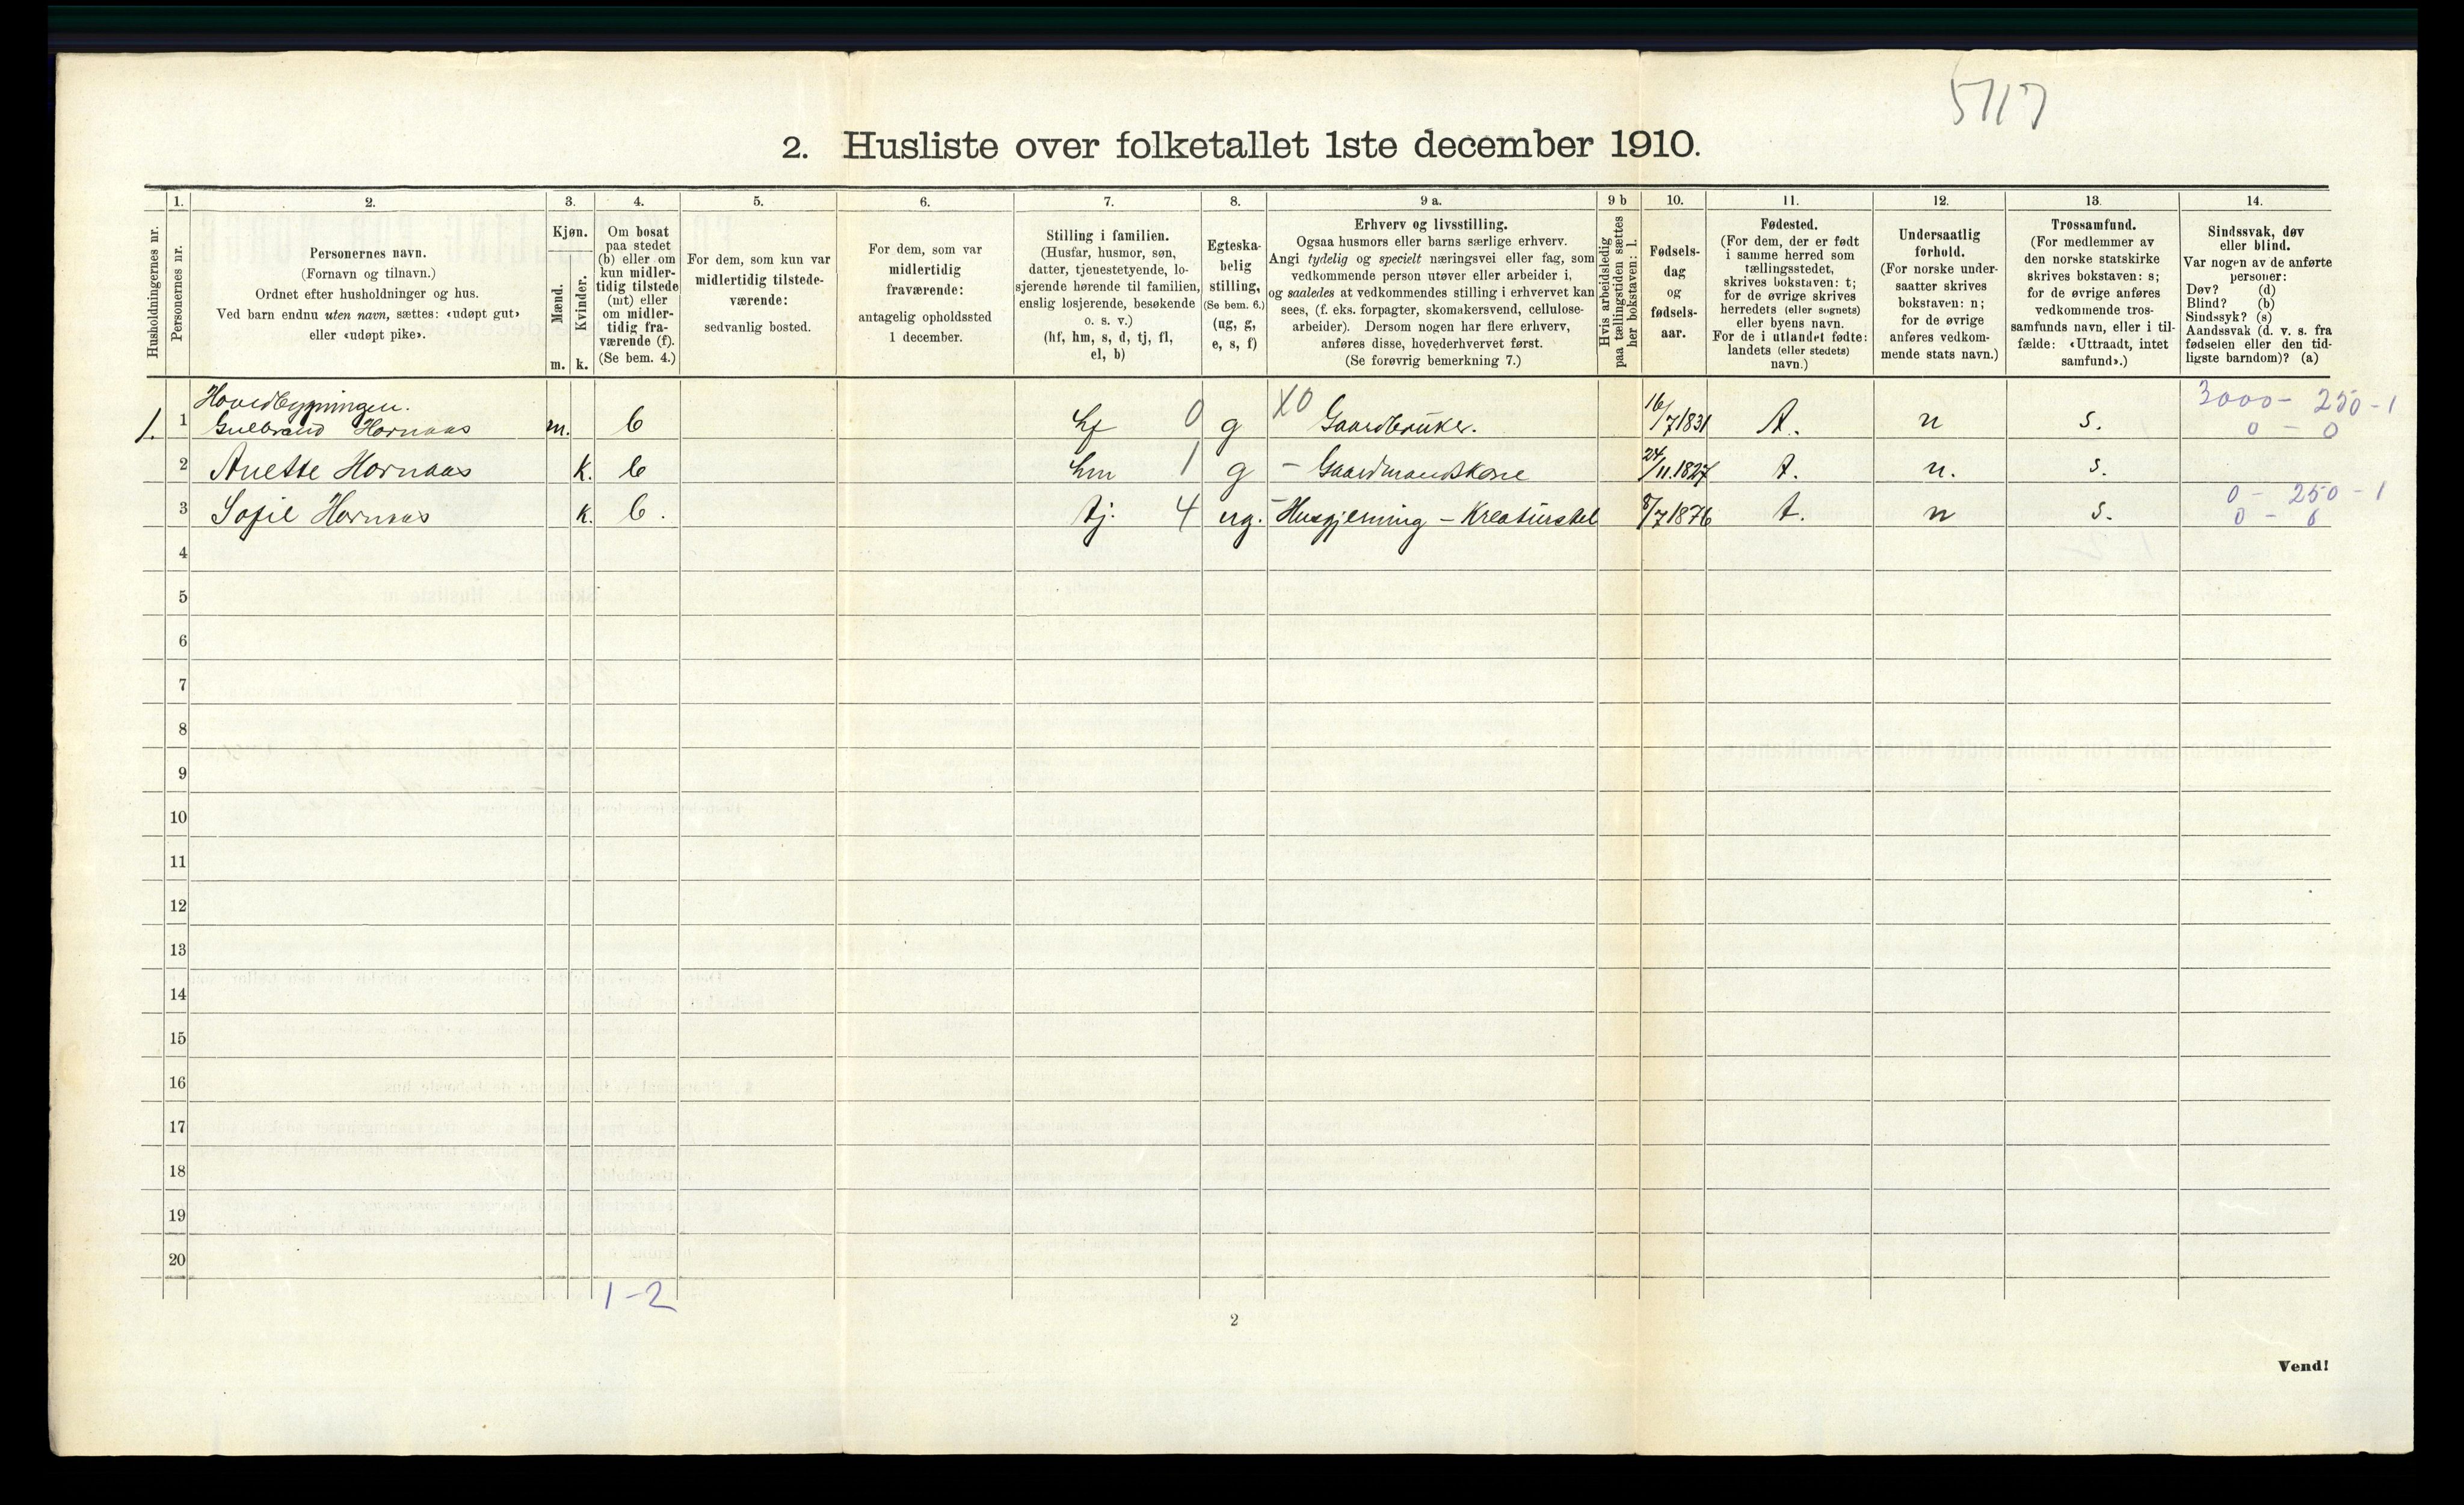 5117
2. Husliste over folketallet 1ste december 1910.
Husholdningernes nr.
1.
Personernes nr.
2.
Personernes navn.
(Fornavn og tilnavn.)
Ordnet efter husholdninger og hus.
Ved barn endnu uten navn, sættes: «udøpt gut»
eller «udøpt pike».
3.
Kjøn.
Mænd.
Kvinder.
m. k.
4.
Om bosat
paa stedet
(b) eller om
kun midler-
tidig tilstede
(mt) eller
om midler-
tidig fra-
værende (f).
(Se bem. 4.)
5.
For dem, som kun var
midlertidig tilstede-
værende:
sedvanlig bosted.
6.
For dem, som var
midlertidig
fraværende:
antagelig opholdssted
1 december.
7.
Stilling i familien.
(Husfar, husmor, søn,
datter, tjenestetyende, lo-
sjerende hørende til familien,
enslig losjerende, besøkende
o. s. v.)
(hf, hm, s, d, tj, fl,
el, b)
8.
Egteska-
belig
stilling,
(Se bem. 6.)
(ug, g,
e, s, f)
9 a.
Erhverv og livsstilling.
Ogsaa husmors eller barns særlige erhverv.
Angi tydelig og specielt næringsvei eller fag, som
vedkommende person utøver eller arbeider i,
og saaledes at vedkommendes stilling i erhvervet kan
sees, (f. eks. forpagter, skomakersvend, cellulose-
arbeider). Dersom nogen har flere erhverv,
anføres disse, hovederhvervet først.
(Se forøvrig bemerkning 7.)
9 b
Hvis arbeidsledig
paa tællingstiden sættes
her bokstaven: l.
10.
Fødsels-
dag
og
fødsels-
aar.
11.
Fødested.
(For dem, der er født
i samme herred som
tællingsstedet,
skrives bokstaven: t;
for de øvrige skrives
herredets (eller sognets)
eller byens navn.
For de i utlandet fødte:
landets (eller stedets)
navn.)
12.
Undersaatlig
forhold.
(For norske under-
saatter skrives
bokstaven: n;
for de øvrige
anføres vedkom-
mende stats navn.)
13.
Trossamfund.
(For medlemmer av
den norske statskirke
skrives bokstaven: s;
for de øvrige anføres
vedkommende tros-
samfunds navn, eller i til-
fælde: «Uttraadt, intet
samfund».)
14.
Sindssvak, døv
eller blind.
Var nogen av de anførte
personer:
Døv? (d)
Blind? (b)
Sindssyk? (s)
Aandssvak (d. v. s. fra
fødselen eller den tid-
ligste barndom)? (a)
Hovedbygningen. 3000 - 250 - 1
1. 1 Gulbrand Hornaas m. b hf 0 g X0 Gaardbruker. 16/7 1831 t. n s. 0 - 0
2 Anette Hornaas k. b hm 1 g - Gaardmandskone 24/11.1827 t. n. s.
3 Sofie Hornaas k. b. tj. 4 ug. - Husgjerning - Kreaturstel 8/7 1876 t. n s. 0 - 250 - 1
0 - 0
4
5
6
7
8
9
10
11
12
13
14
15
16
17
18
19
20
1-2
2
Vend!